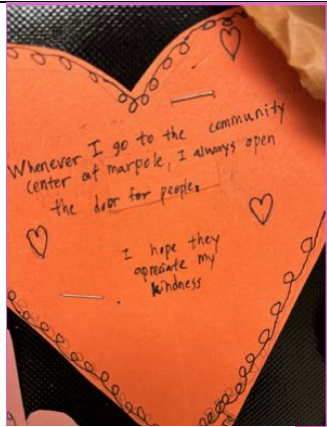 Whenever I go to the community
center at marpole, I always open
the door for people.
I hope they
apreciate my
kindness